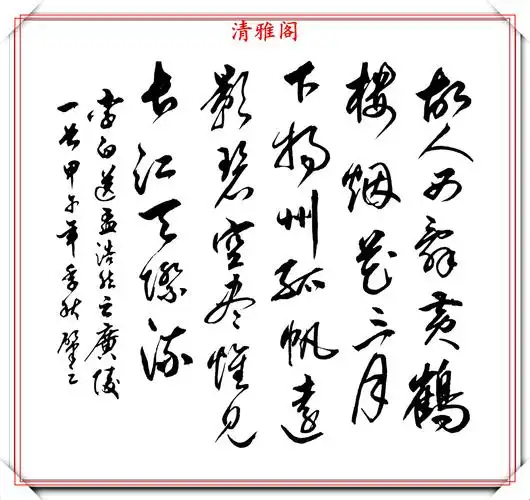 清雅阁
故人西辞黄鹤
楼烟花三月
下扬州孤帆远
影碧空尽惟见
长江天际流
李白送孟浩然之廣陵
一首甲午年季秋肇